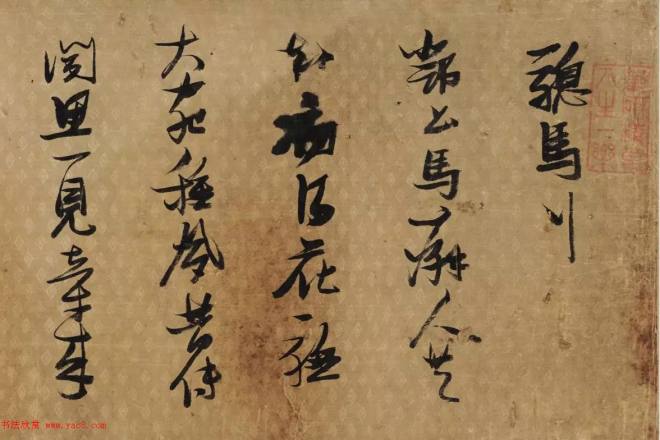 驄馬行
鄧公馬癖人共
知初得花驄
大宛種夙昔傳
聞思一見牽來
书法欣赏 www.yac8.com